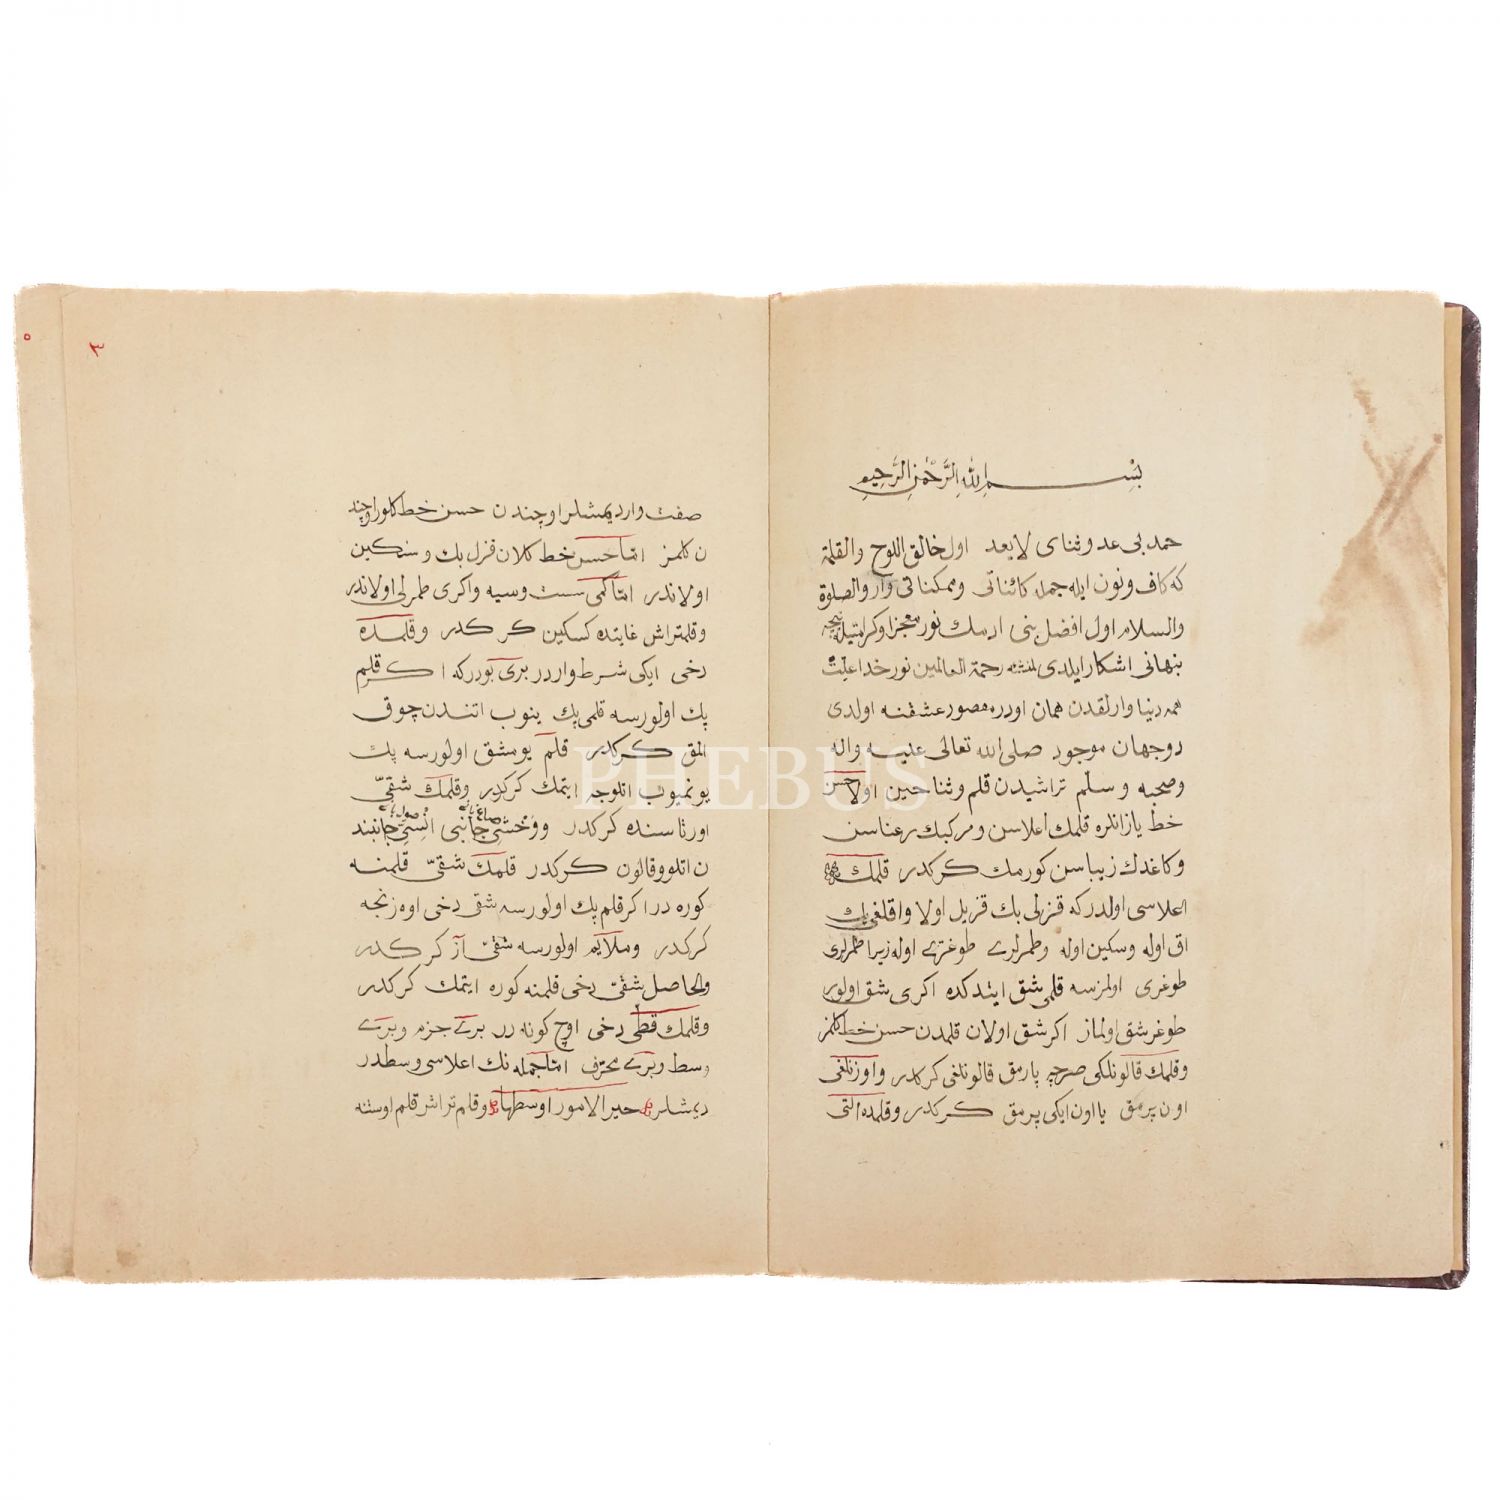 بسم الله الرحمن الرحيم
حمد بی عد و ثنای لا یعد اول خالق اللوح والقلمه
که کاف و نون ایله جمله کائناتی و ممکناتی وار والصلوة
والسلام اول افضل بنی ادمك نور معجزا و کرامتیله
بنهانی اشکار ایلدی رحمة العالمین نور خدا
همه دنیا وارلقدن همان اودره مقصود عشقنه اولدی
دو جهان موجود صلی الله تعالی علیه واله
وصحبه وسلم تراشیدن قلم و ثنا حین اولا حسن
خط یازانلره قلمك اعلاسن و مرکبك رعناسن
و کاغدك زیباسن کورمك کرکدر قلمك
اعلاسی اولدر که قزلی بك قزیل اولا و اقلغی بك
اق اوله و سکین اوله و طمرلری طوغری اوله زیرا طمرلری
طوغری اولمزسه قلمی شق ایتدکده اکری شق اولور
طوغر شق اولماز اکر شق اولان قلمدن حسن خط کلمز
و قلمك قالونلکی صرچه پارمق قالونلغی کرکدر و اوزنلغی
اون پرمق یا اون ایکی پرمق کرکدر و قلمده التی
PHEBUS
٣
٥
صفت وار دیمشلر اوچندن حسن خط کلور اوچند
ن کلمز اما حسن خط کلان قزل بك و سنکین
اولاندر اما کمی سست و سیه و اکری طمرلی اولاندر
و قلمتراش غایتده کسکین کرکدر و قلمده
دخی ایکی شرط واردر بری بودر که اکر قلم
پك اولورسه قلمی پك ینوب اتندن چوق
المق کرکدر قلم یومشق اولورسه پك
یونمیوب اتلوجه ایتمك کرکدر و قلمك شقی
اورتاسنده کرکدر و وحشی جانبی انسی جانبند
ن اتلو و قالون کرکدر قلمك شقی قلمنه
کوره در اکر قلم پك اولورسه شقی دخی اوه زنجه
کرکدر و ملایم اولورسه شقی از کرکدر
والحاصل شقی دخی قلمنه کوره ایتمك کرکدر
و قلمك قطی دخی اوچ کونه در بری جزم و بری
وسط و بری محرف اما جمله نك اعلاسی وسطدر
دیمشلر خیر الامور اوسطها و قلم تراش قلم اوستنه